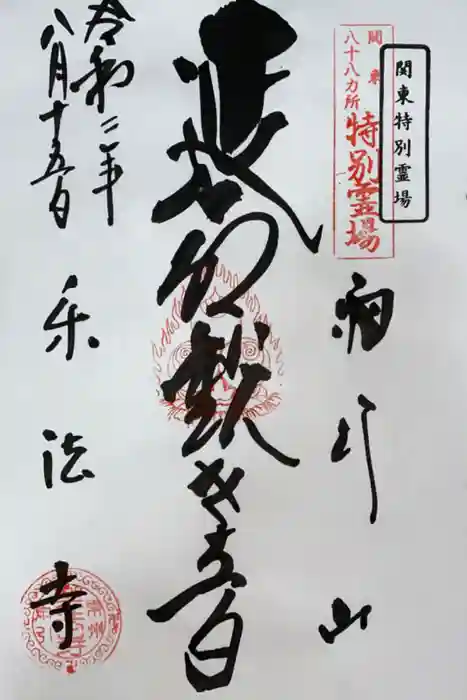 関東特別霊場
関東
八十八カ所
特別霊場
雨引山
延命観世音
令和二年
八月十五日
楽法寺